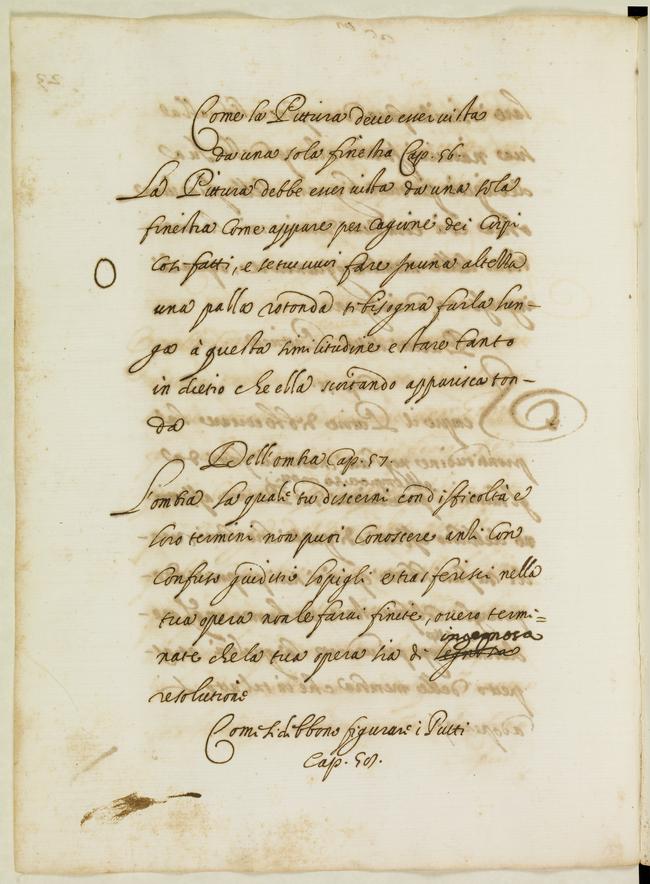 Come la Pittura deve esser vista
da una sola finestra Cap. 56.
La Pittura debbe esser vista da una sola
finestra Come appare per cagione dei Corpi
Cosi fatti, e se tu vuoi fare in una altezza
una palla rotonda ti bisogna farla lun-
ga à questa similitudine e stare tanto
in dietro che ella scortando apparisca ton-
da
Dell'ombra Cap. 57.
L'ombra la quale tu discerni con dificoltà e
loro termini non puoi Conoscere anzi Con
Confuso giuditio li pigli e trasferisci nella
tua opera non le farai finite, overo termi=
nate che la tua opera sia di ingegnosa
resolutione
Come si debbono figurare i Putti
Cap. 58.